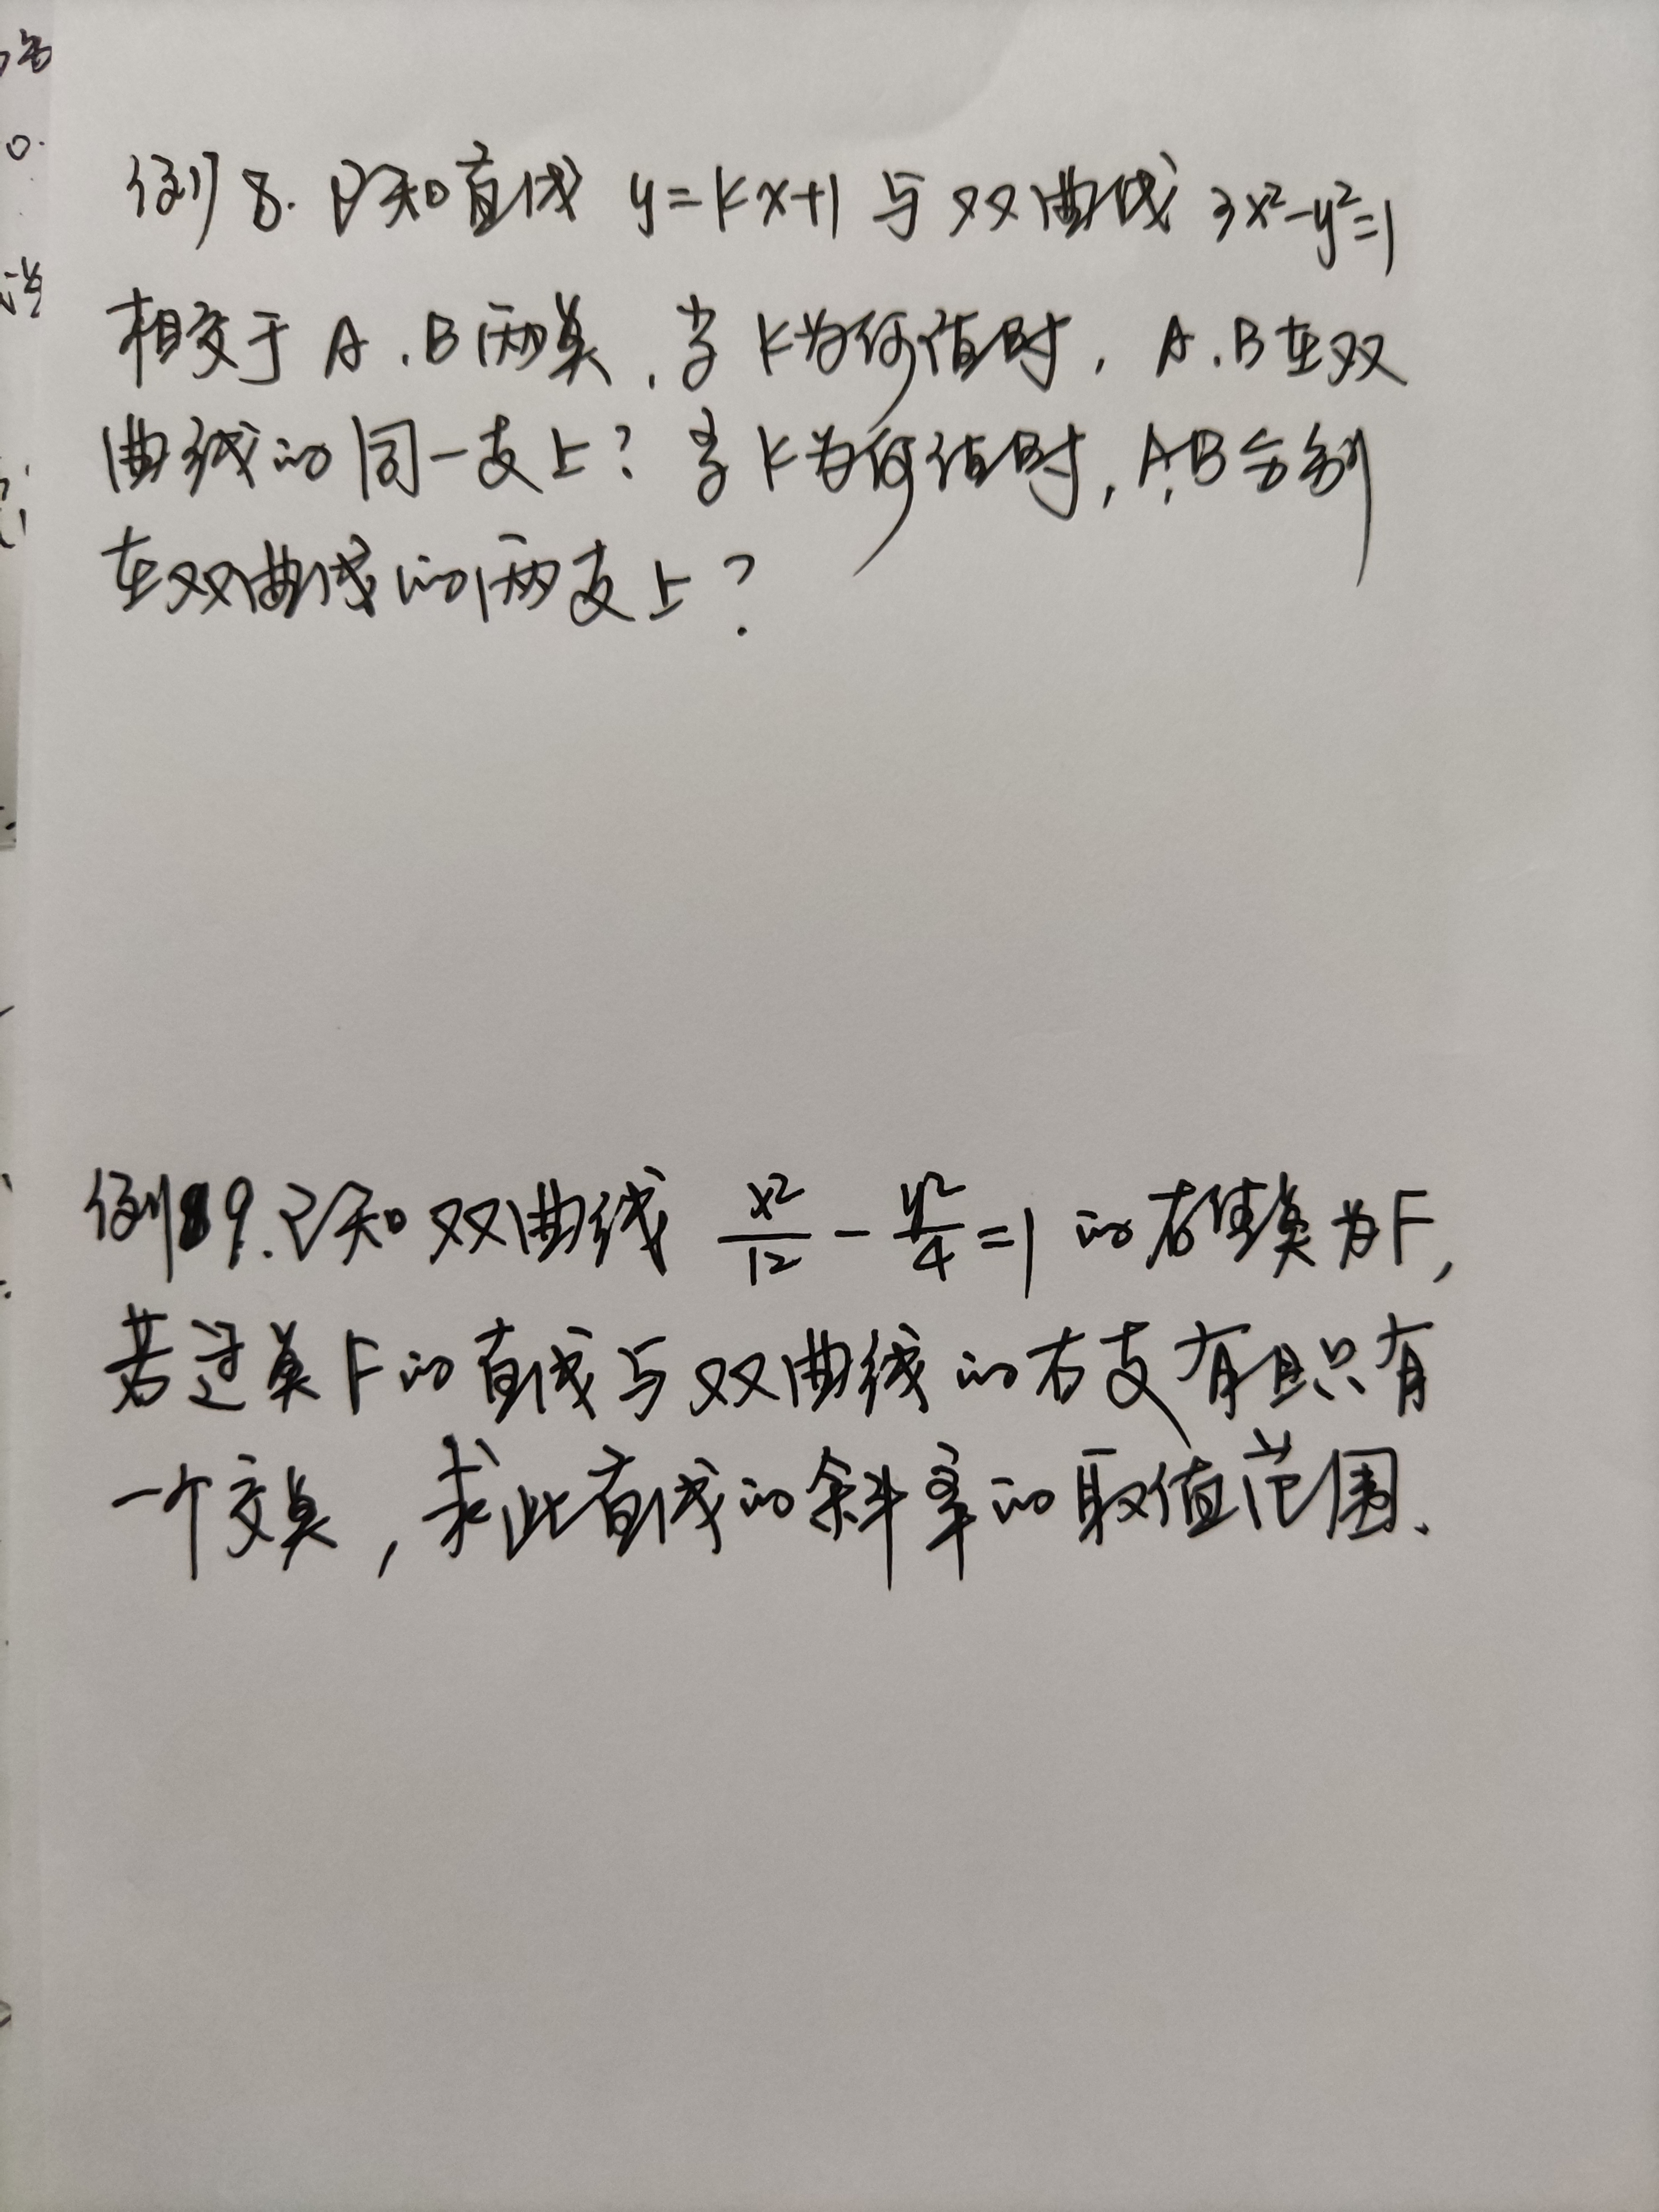 例8.已知直线 y=kx+1 与双曲线 3x²-y²=1
相交于 A.B两点,当k为何值时,A.B在双
曲线的同一支上?当k为何值时,A,B分别
在双曲线的两支上?
例9.已知双曲线 x²/12 - y²/4 =1 的右焦点为F,
若过点F的直线与双曲线的右支有且只有
一个交点,求此直线的斜率的取值范围.